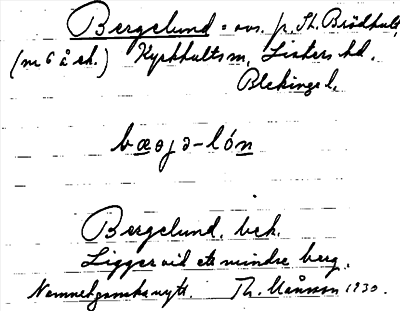 Bergelund: avs. p. St. Brödhult,
(m 6 å ek.) Kyrkhults sn, Listers hd,
Blekinge l.
bæɑjə-lón
Bergelund, bek.
Ligger vid ett mindre berg.
Namnet ganska nytt. Th. Månsson 1930.